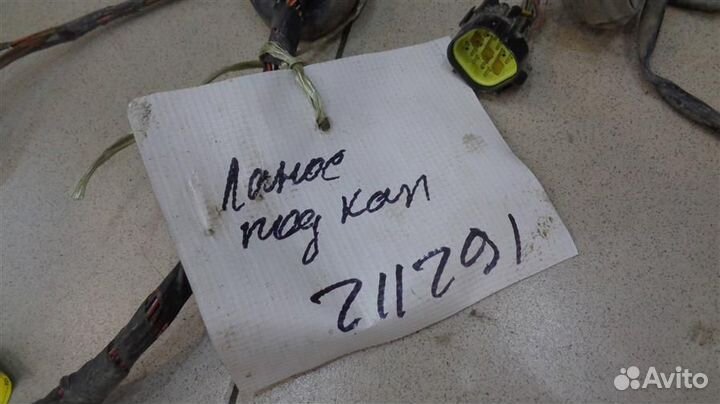 Ланос
под кап
211291
Avito